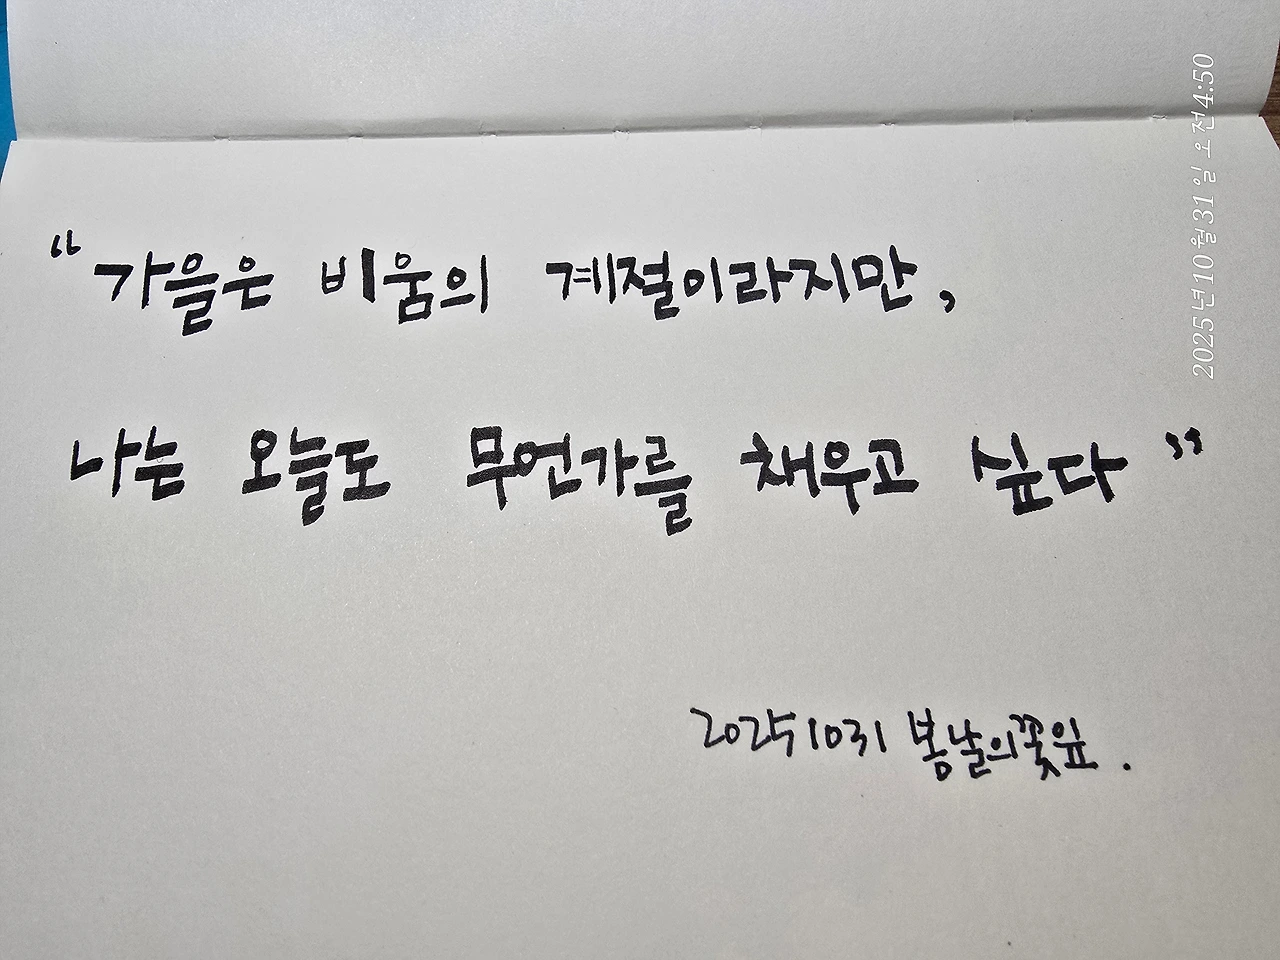 “가을은 비움의 계절이라지만,
나는 오늘도 무언가를 채우고 싶다”
20251031 봄날의꽃잎.
2025년 10월 31일 오전 4:50